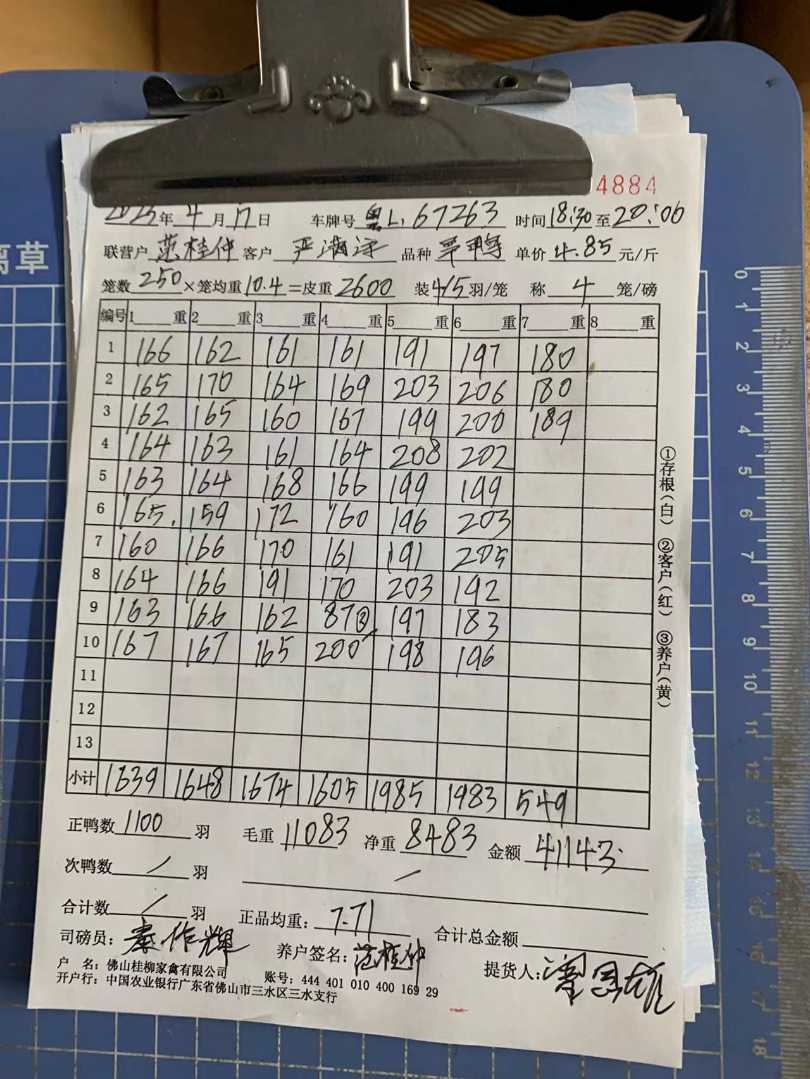 4884
2025年4月17日 车牌号 粤L.67263 时间18:30至20:00
联营户 范桂仲 客户 品种 单价 4.85 元/斤
笼数 250 ×笼均重 10.4 =皮重 2600 装 4/5 羽/笼 称 4 笼/磅
编号 1 重 2 重 3 重 4 重 5 重 6 重 7 重 8 重
1 166 162 161 161 191 197 180
2 165 170 164 169 203 206 180
3 162 165 160 167 199 200 189
4 164 163 161 164 208 202
5 163 164 168 166 199 199
6 165. 159 172 160 196 203
7 160 166 170 161 191 205
8 164 166 191 170 203 192
9 163 166 162 87② 197 183
10 167 167 165 200 198 196
11
12
13
小计 1639 1648 1674 1605 1985 1983 549
正鸭数 1100 羽 毛重 11083 净重 8483 金额 41143.
次鸭数 / 羽 /
合计数 / 羽 正品均重: 7.71 合计总金额
司磅员: 秦作辉 养户签名: 范桂仲 提货人:
户 名: 佛山桂柳家禽有限公司 账号: 444 401 010 400 169 29
开户行: 中国农业银行广东省佛山市三水区三水支行
①存根(白) ②客户(红) ③养户(黄)
离草
0
1
2
3
4
5
6
7
8
9
10
11
12
13
14
15
16
17
18